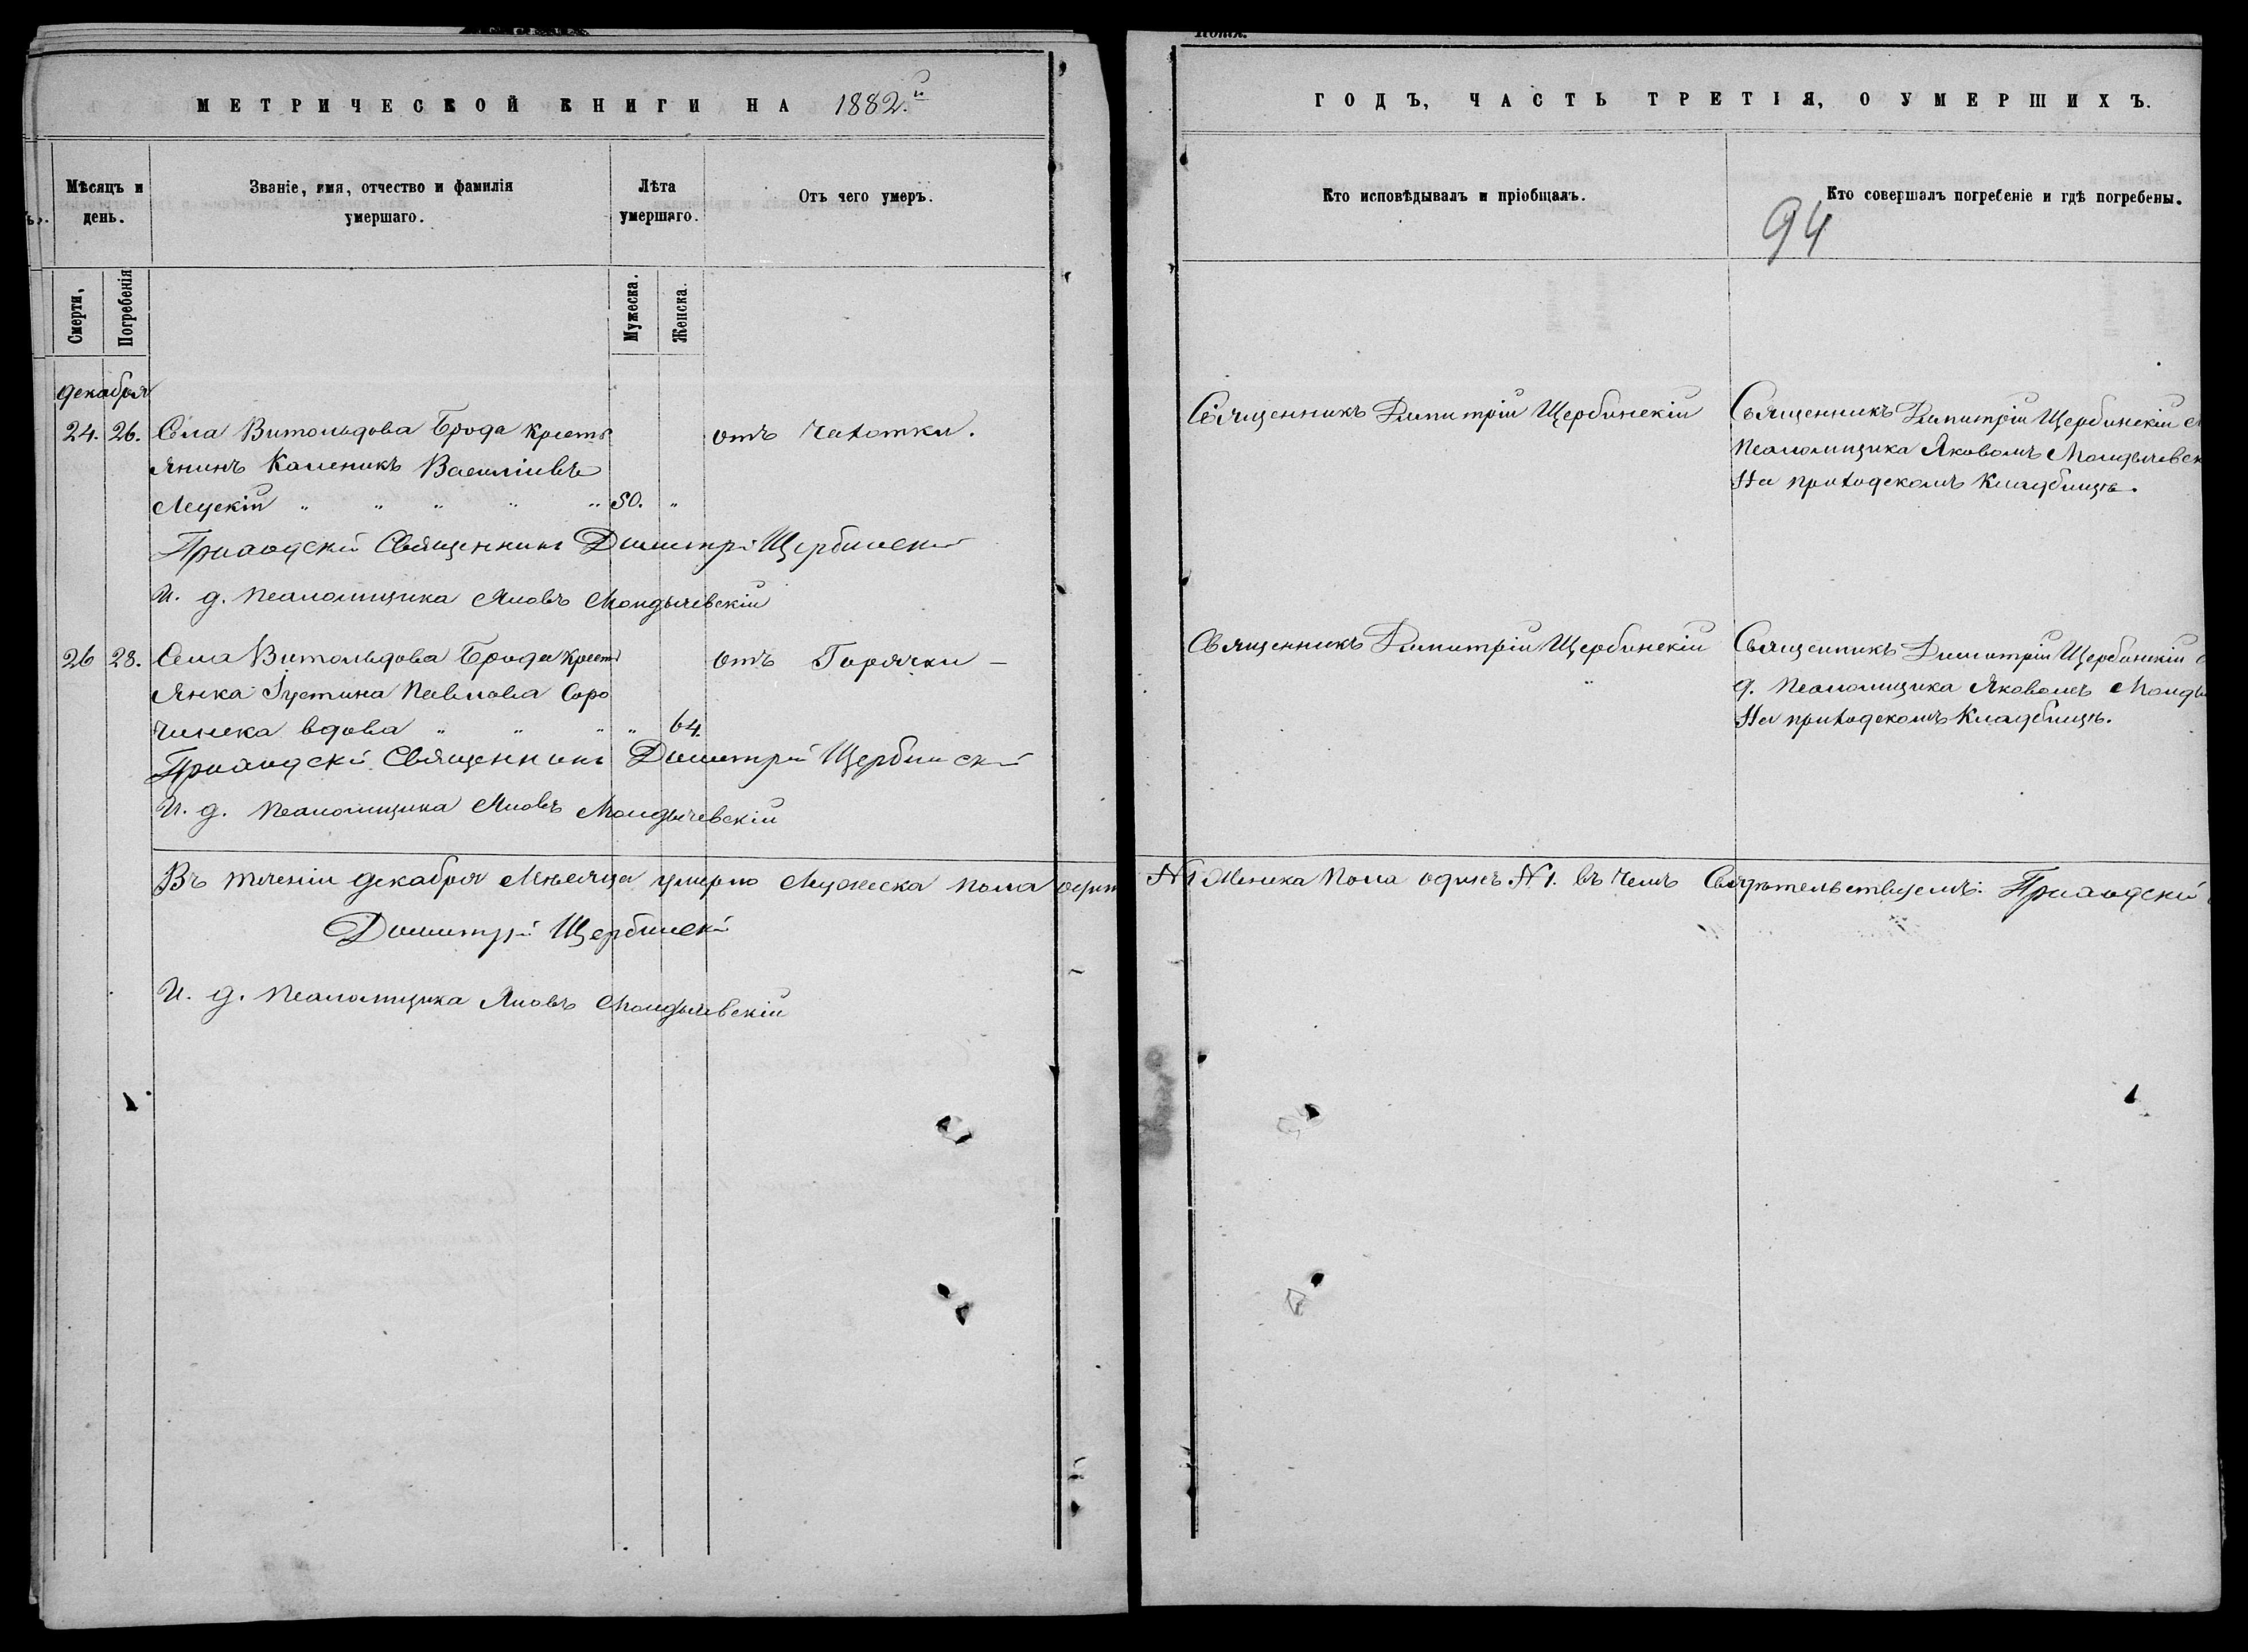 МЕТРИЧЕСКОЙ КНИГИ НА 1882.й
Мѣсяцъ и день.
Званіе, имя, отчество и фамилія умершаго.
Лѣта умершаго.
Отъ чего умеръ.
Смерти,
Погребенія
Мужеска.
Женска.
декабря
24. 26. Села Витольдова Брода кресть
отъ Чахотки.
янинъ Каленикъ Василіевъ
Лецскій " " " " " 50. "
Приходскій Священникъ Димитрій Щербинскій
И. д. псаломщика Яковъ Молдычевскій
26 28. Села Витольдова Брода крест
отъ Горячки –
янка Іустина Павлова Соро
чинска вдова " " " " 64.
Приходскій Священникъ Димитрій Щербинскій
И. д. псаломщика Яковъ Молдычевскій
Въ теченіи декабря Мѣсяца умерло Мужеска пола один
Димитрій Щербинскій
И. д. псаломщика Яковъ Молдычевскій
ГОДЪ, ЧАСТЬ ТРЕТІЯ, О УМЕРШИХЪ.
Кто исповѣдывалъ и пріобщалъ.
Кто совершалъ погребеніе и гдѣ погребены.
94
Священникъ Димитрій Щербинскій
Священникъ Димитрій Щербинскій
псаломщика Яковомъ Молдычевск
На приходскомъ Кладбищѣ.
Священникъ Димитрій Щербинскій
Священникъ Димитрій Щербинскій
д. псаломщика Яковомъ Молды
На приходскомъ Кладбищѣ.
№1 Женска пола одинъ №1. въ чемъ Свидѣтельствуемъ: Приходскій